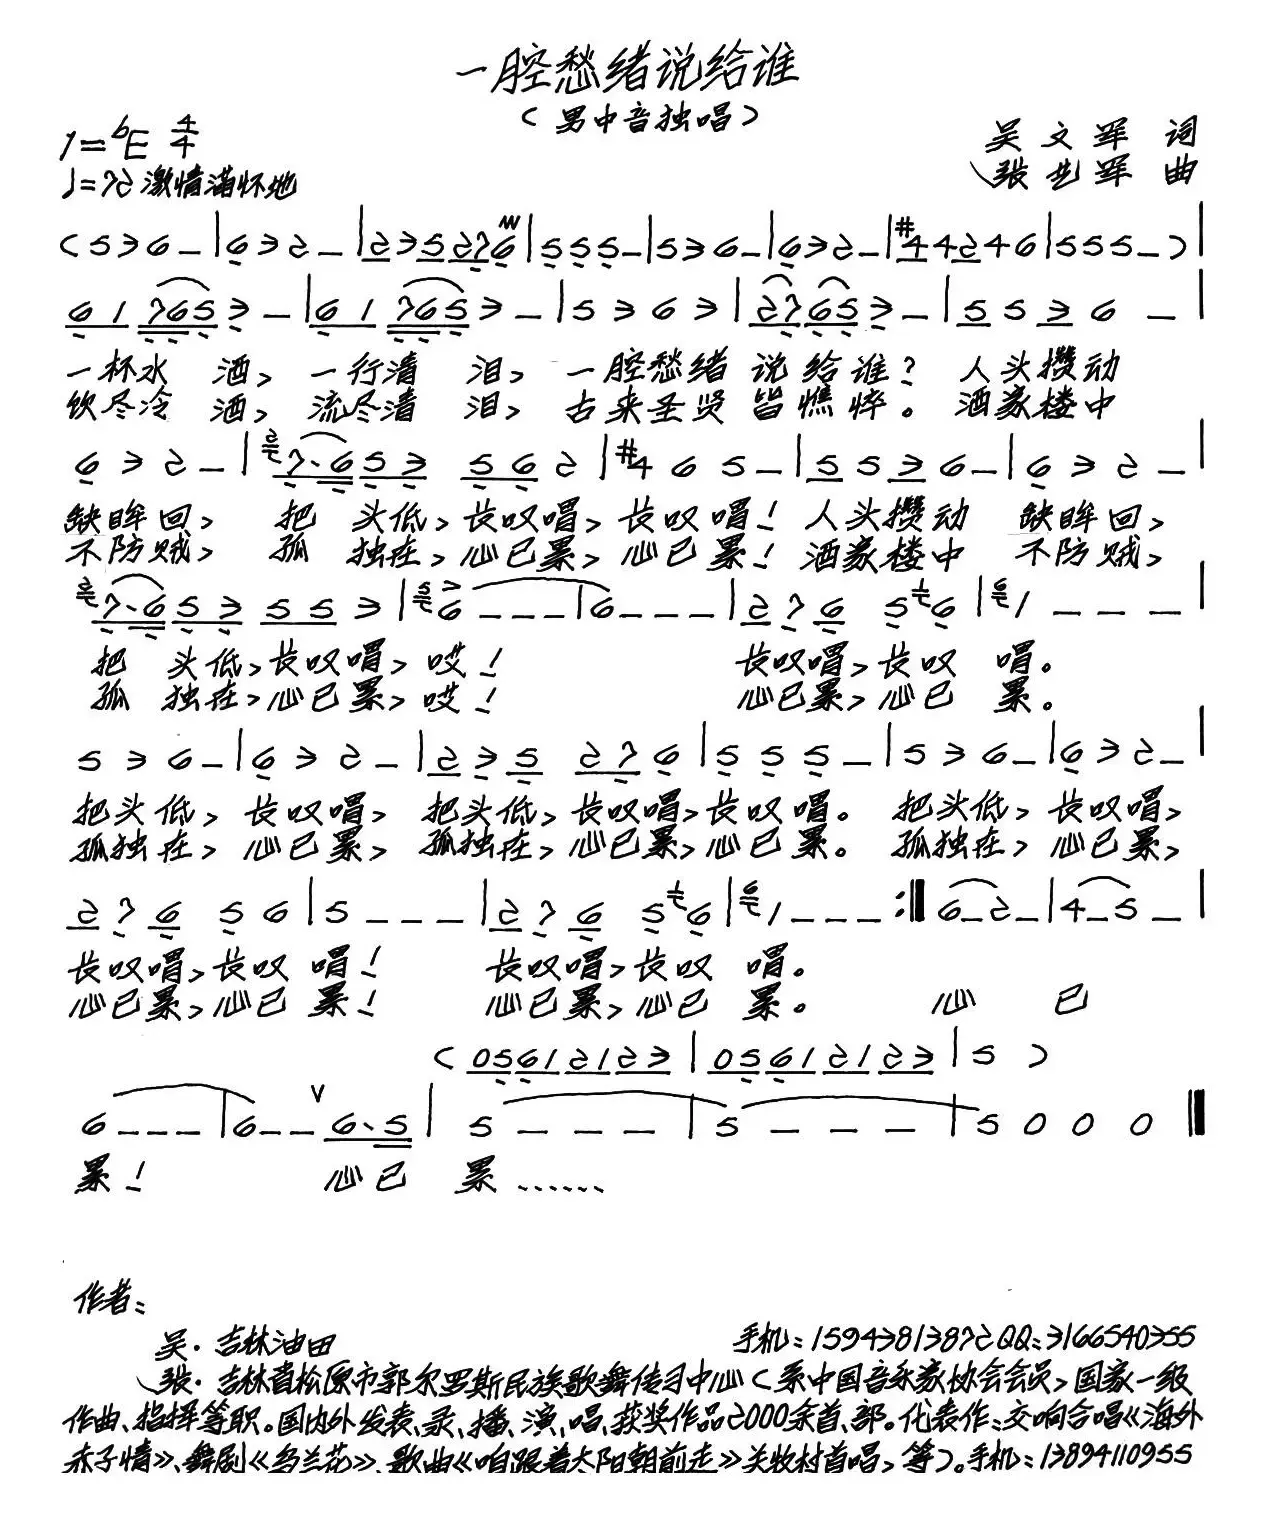 一腔愁绪说给谁
（男中音独唱）
1=♭E 4/4
吴文军 词
♩=72 激情满怀地
张艺军 曲
(5 3 6 – | 6 3 2 – | 2 3 5 2 7 6 | 5 5 5 – | 5 3 6 – | 6 3 2 – | #4 4 2 4 6 | 5 5 5 – ) |
6 1 7 6 5 3 – | 6 1 7 6 5 3 – | 5 3 6 3 | 2 7 6 5 3 – | 5 5 3 6 – |
一杯水 酒，一行清 泪，一腔愁绪 说给谁？人头攒动
饮尽冷 酒，流尽清 泪，古来圣贤 皆憔悴。酒家楼中
6 3 2 – | 7· 6 5 3 5 6 2 | #4 6 5 – | 5 5 3 6 – | 6 3 2 – |
缺眸回，把 头低，长叹喟，长叹喟！人头攒动 缺眸回，
不防贼，孤 独在，心已累，心已累！酒家楼中 不防贼，
7· 6 5 3 5 5 3 | 6 – – – | 6 – – – | 2 7 6 5 6 | 1 – – – |
把 头低，长叹喟，哎！ 长叹喟，长叹 喟。
孤 独在，心已累，哎！ 心已累，心已 累。
5 3 6 – | 6 3 2 – | 2 3 5 2 7 6 | 5 5 5 – | 5 3 6 – | 6 3 2 – |
把头低，长叹喟，把头低，长叹喟，长叹喟。把头低，长叹喟，
孤独在，心已累，孤独在，心已累，心已累。孤独在，心已累，
2 7 6 5 6 | 5 – – – | 2 7 6 5 6 | 1 – – – :‖ 6 – 2 – | 4 – 5 – |
长叹喟，长叹 喟！ 长叹喟，长叹 喟。
心已累，心已 累！ 心已累，心已 累。 心 已
( 0 5 6 1 2 1 2 3 | 0 5 6 1 2 1 2 3 | 5 )
6 – – – | 6 – – ∨ 6· 5 | 5 – – – | 5 – – – | 5 0 0 0 ‖
累！ 心已 累……
作者：
吴·吉林油田 手机：15943813872 QQ：3166540355
张·吉林省松原市郭尔罗斯民族歌舞传习中心（系中国音乐家协会会员，国家一级
作曲、指挥等职。国内外发表、录、播、演、唱、获奖作品2000余首、部。代表作：交响合唱《海外
赤子情》、舞剧《乌兰花》、歌曲《咱跟着太阳朝前走》关牧村首唱，等）。手机：13894110955